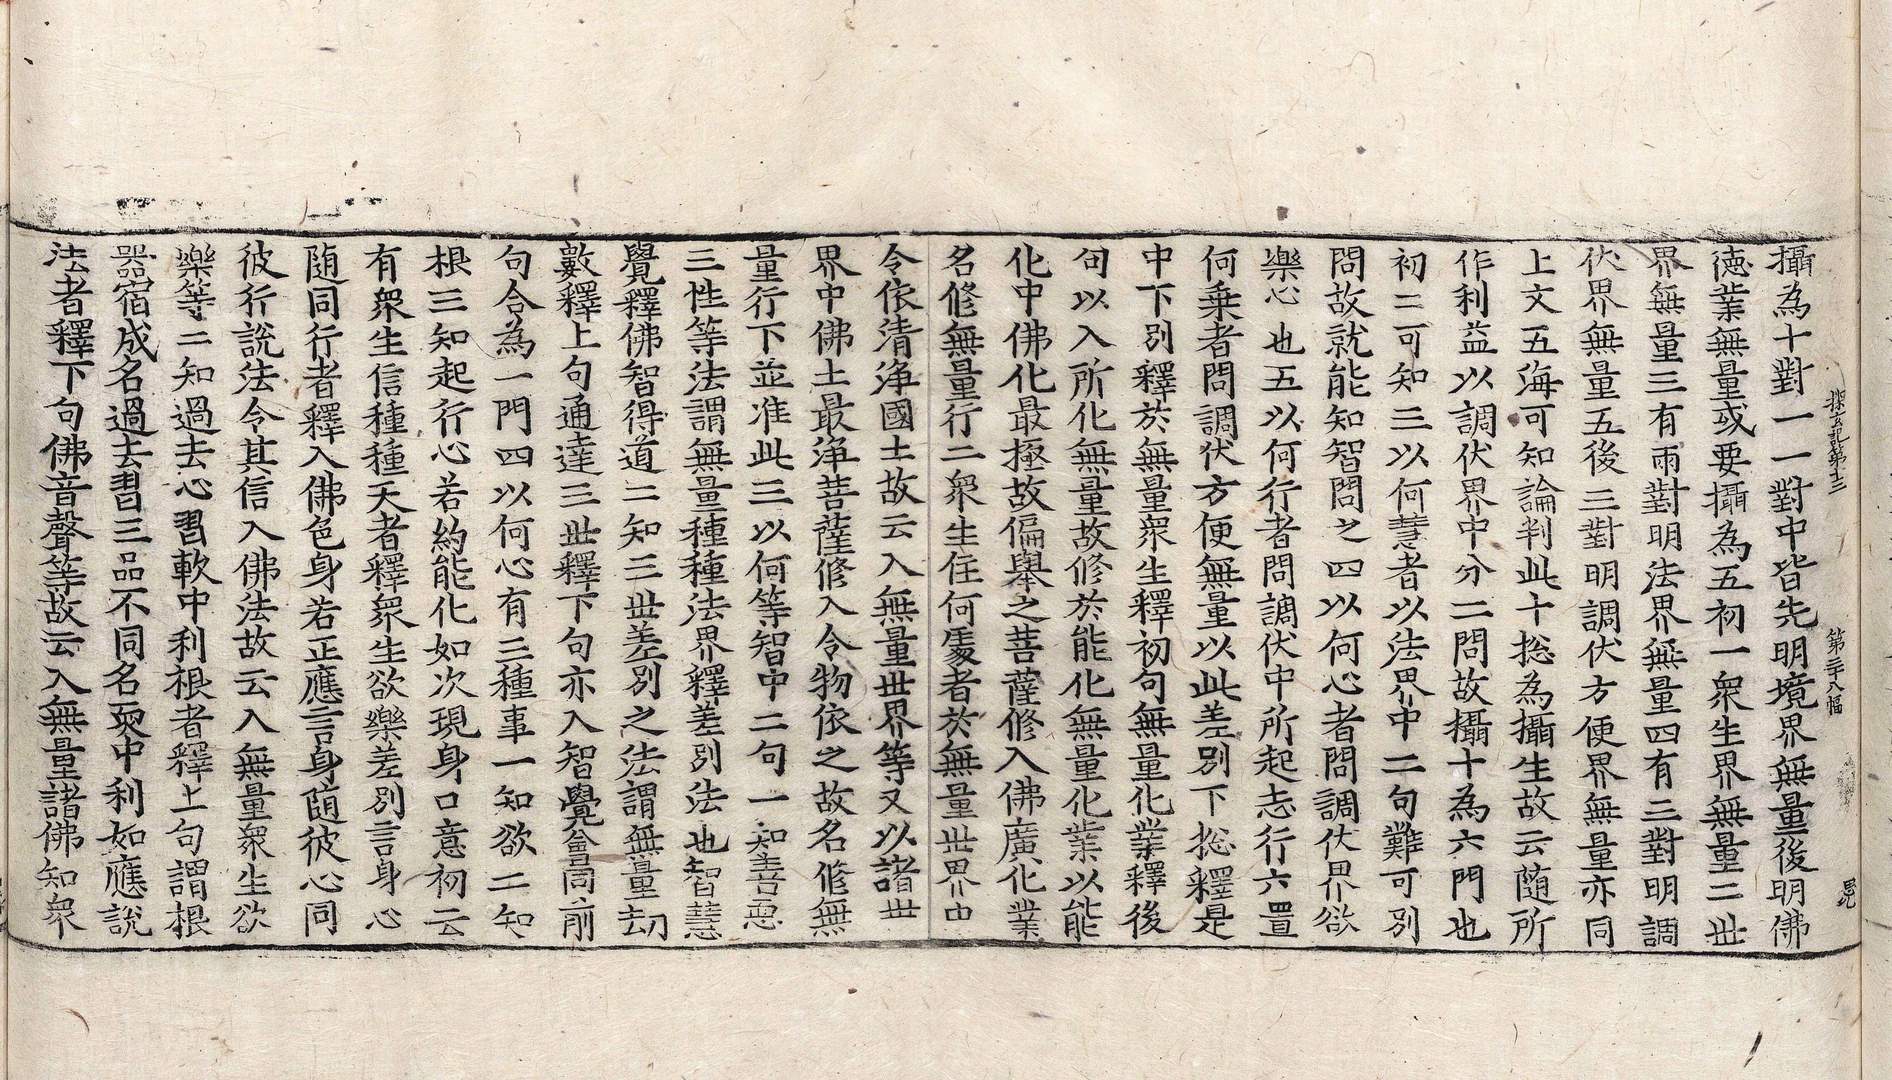 攝為十對一一對中皆先明境界無量後明佛
徳業無量或要攝為五初一衆生界無量二世
界無量三有兩對明法界無量四有三對明調
伏界無量五後三對明調伏方便界無量亦同
上文五海可知論判此十捴為攝生故云随所
作利益以調伏界中分二問故攝十為六門也
初二可知三以何慧者以法界中二句難可別
問故就能知智問之四以何心者問調伏界欲
樂心也五以何行者問調伏中所起志行六置
何乗者問調伏方便無量以此差別下捴釋是
中下別釋於無量衆生釋初句無量化業釋後
句以入所化無量故修於能化無量化業以能
化中佛化最極故偏舉之菩薩修入佛廣化業
名修無量行二衆生住何處者於無量世界由
令依清淨國土故云入無量世界等又以諸世
界中佛土最淨菩薩修入令物依之故名修無
量行下並准此三以何等智中二句一知善惡
三性等法謂無量種種法界釋差別法也智慧
覺釋佛智得道二知三世差別之法謂無量劫
數釋上句通達三世釋下句亦入智覺會同前
句合為一門四以何心有三種事一知欲二知
根三知起行心若約能化如次現身口意初云
有衆生信種種天者釋衆生欲樂差別言身心
随同行者釋入佛色身若正應言身随彼心同
彼行說法令其信入佛法故云入無量衆生欲
樂等二知過去心習軟中利根者釋上句謂根
器宿成名過去習三品不同名耎中利如應說
法者釋下句佛音聲等故云入無量諸佛知衆
探玄記第十三　第二十八幅